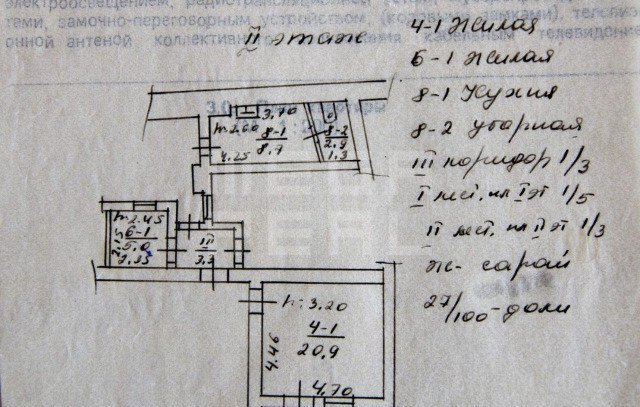 электроосвещением, радиотрансляционной
теми, замочно-переговорным устройством, телевиз
онной антеной коллективного кабельным телевидение
II этаж
4-1 жилая
6-1 жилая
8-1 Кухня
8-2 уборная
III коридор 1/3
I лест. кл I эт 1/5
II лест. кл II эт 1/3
Ж- сарай
27/100 доли
3,70
h-2.60
8-1
8.7
4.25
8-2
2.9
1.3
h-2.45
6-1
5.0
III
3.3
h-3.20
4-1
20.9
4.46
4.70